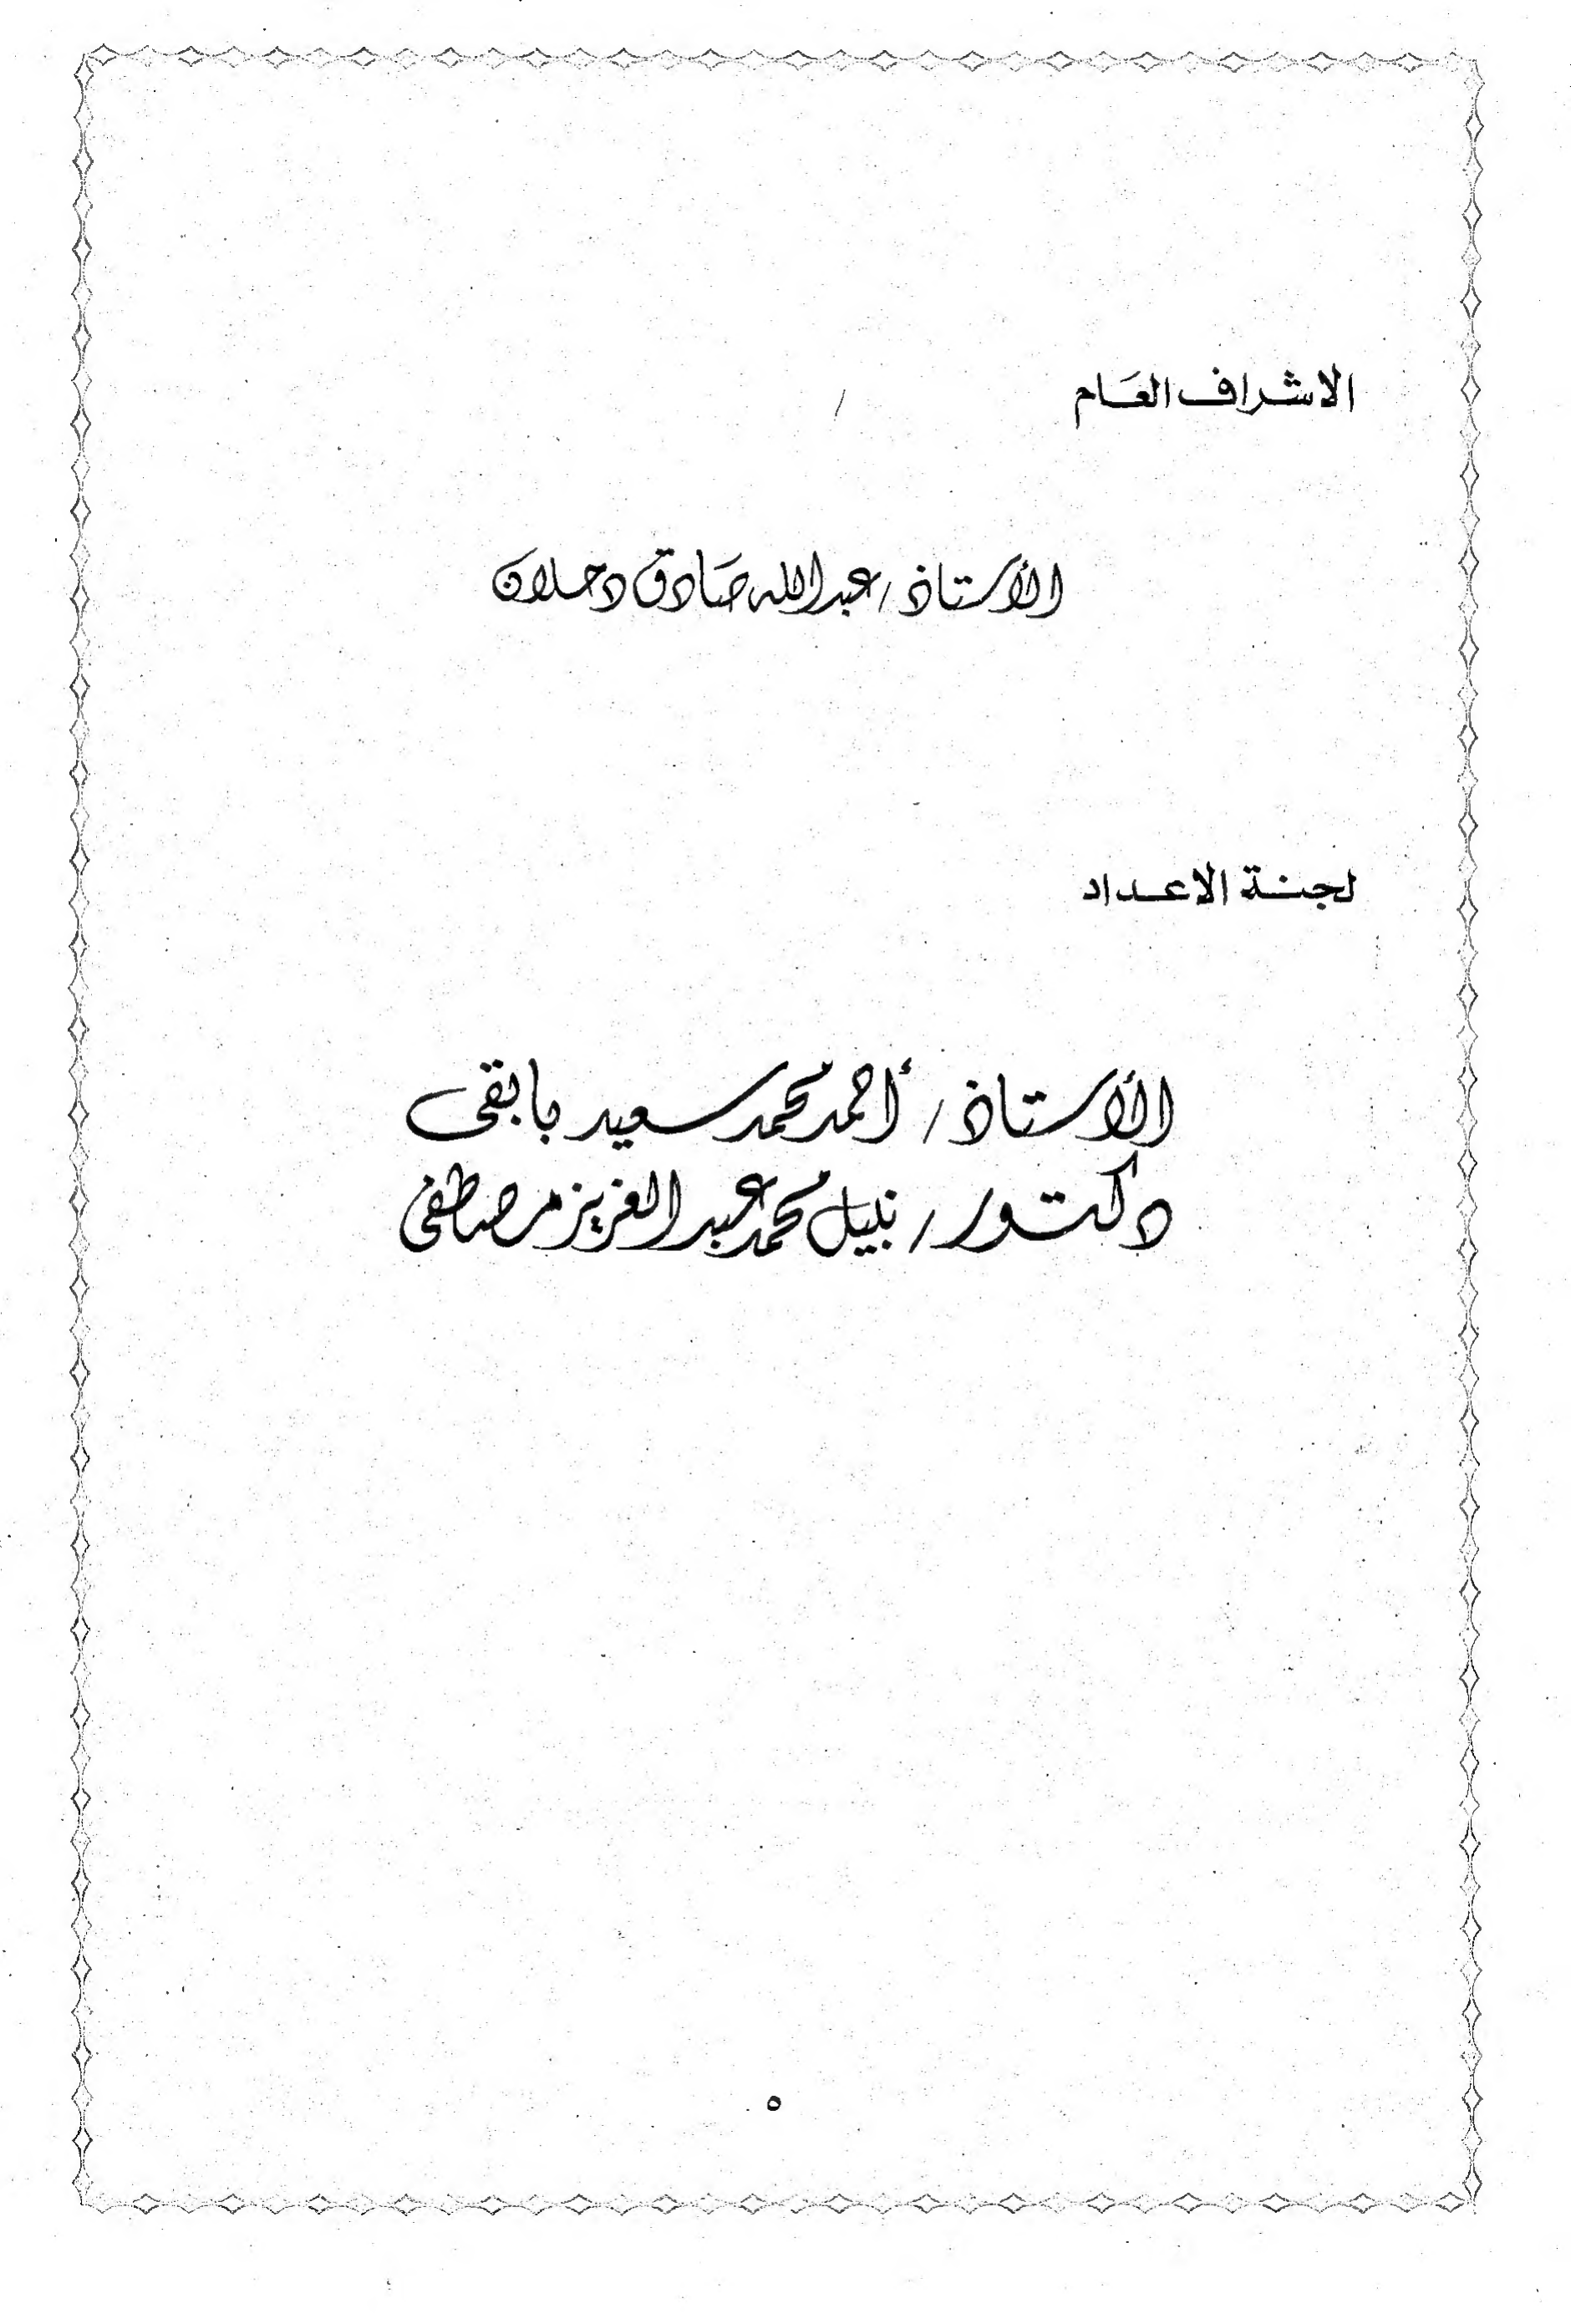 الاشراف العام
الأستاذ / عبدالله صادق دحلان
لجنة الاعداد
الأستاذ / أحمد محمد سعيد بابقى
دكتور / نبيل محمد عبد العزيز مصطفى
٥